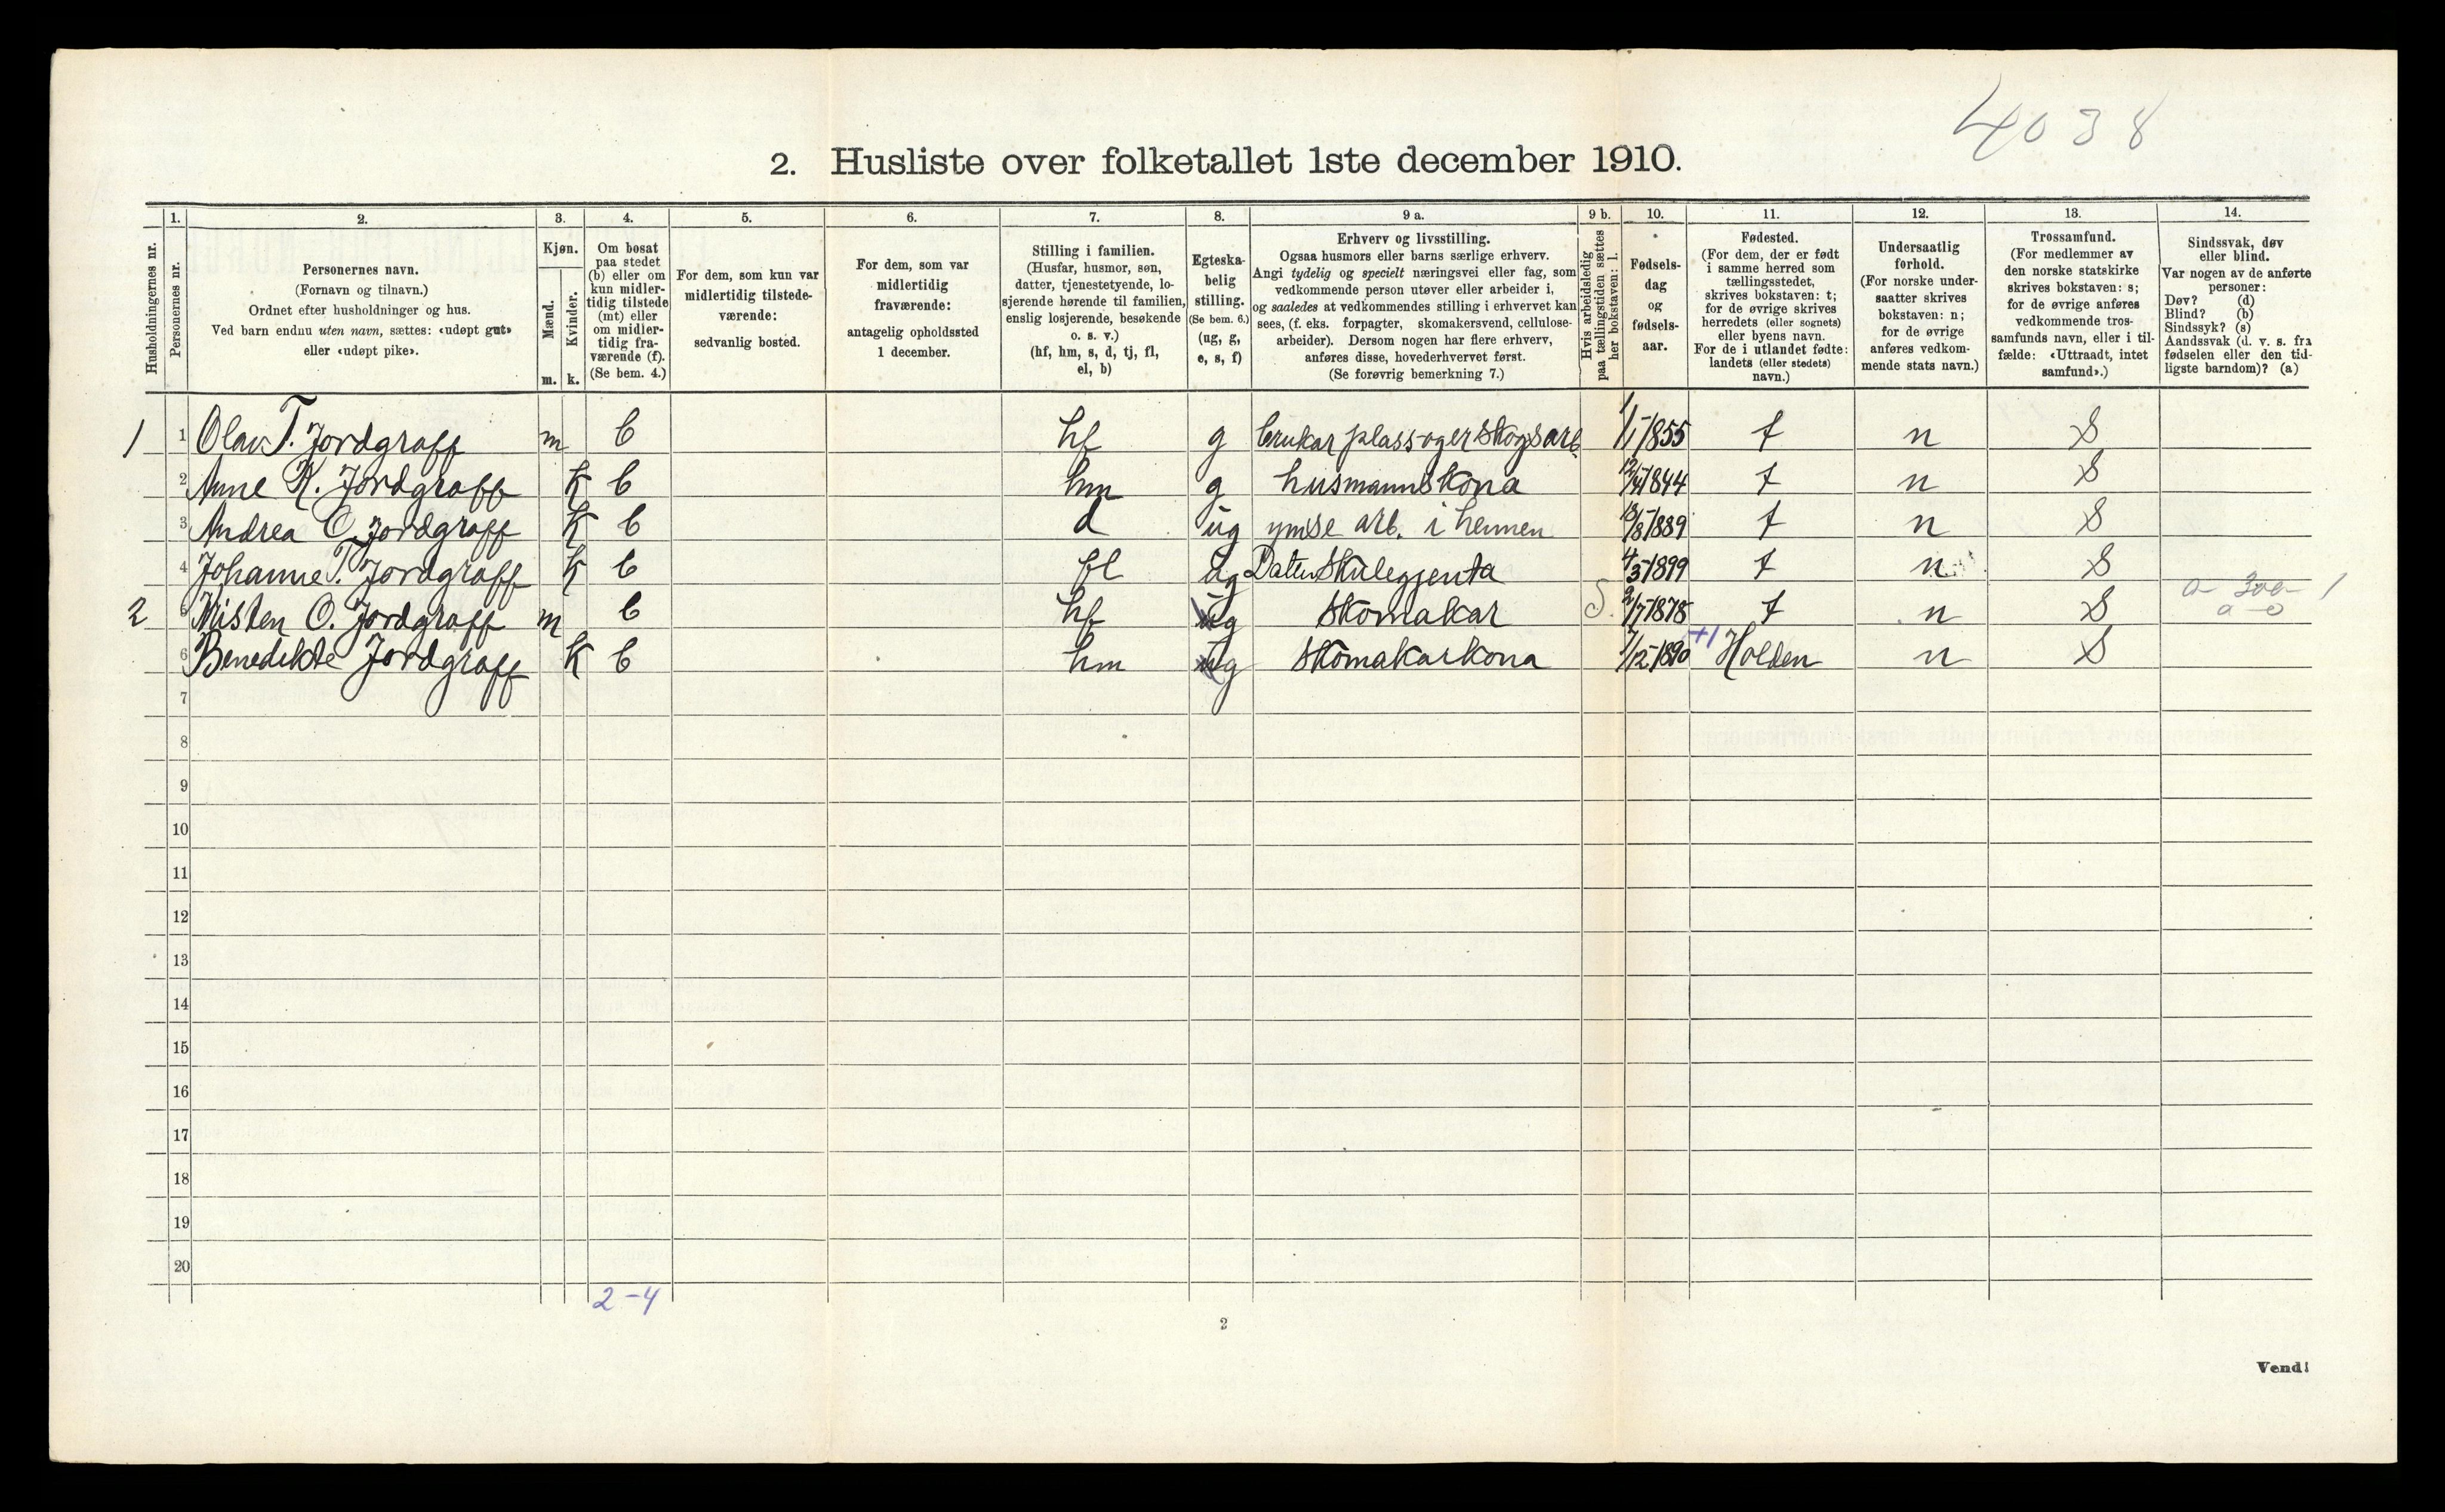 4038
2. Husliste over folketallet 1ste december 1910.
1. 2. 3. 4. 5. 6. 7. 8. 9 a. 9 b. 10. 11. 12. 13. 14.
Husholdningernes nr.
Personernes nr.
Personernes navn.
(Fornavn og tilnavn.)
Ordnet efter husholdninger og hus.
Ved barn endnu uten navn, sættes: «udøpt gut»
eller «udøpt pike».
Kjøn.
Mænd.
Kvinder.
m. k.
Om bosat
paa stedet
(b) eller om
kun midler-
tidig tilstede
(mt) eller
om midler-
tidig fra-
værende (f).
(Se bem. 4.)
For dem, som kun var
midlertidig tilstede-
værende:
sedvanlig bosted.
For dem, som var
midlertidig
fraværende:
antagelig opholdssted
1 december.
Stilling i familien.
(Husfar, husmor, søn,
datter, tjenestetyende, lo-
sjerende hørende til familien,
enslig losjerende, besøkende
o. s. v.)
(hf, hm, s, d, tj, fl,
el, b)
Egteska-
belig
stilling.
(Se bem. 6.)
(ug, g,
e, s, f)
Erhverv og livsstilling.
Ogsaa husmors eller barns særlige erhverv.
Angi tydelig og specielt næringsvei eller fag, som
vedkommende person utøver eller arbeider i,
og saaledes at vedkommendes stilling i erhvervet kan
sees, (f. eks. forpagter, skomakersvend, cellulose-
arbeider). Dersom nogen har flere erhverv,
anføres disse, hovederhvervet først.
(Se forøvrig bemerkning 7.)
Hvis arbeidsledig
paa tællingstiden sættes
her bokstaven: l.
Fødsels-
dag
og
fødsels-
aar.
Fødested.
(For dem, der er født
i samme herred som
tællingsstedet,
skrives bokstaven: t;
for de øvrige skrives
herredets (eller sognets)
eller byens navn.
For de i utlandet fødte:
landets (eller stedets)
navn.)
Undersaatlig
forhold.
(For norske under-
saatter skrives
bokstaven: n;
for de øvrige
anføres vedkom-
mende stats navn.)
Trossamfund.
(For medlemmer av
den norske statskirke
skrives bokstaven: s;
for de øvrige anføres
vedkommende tros-
samfunds navn, eller i til-
fælde: «Uttraadt, intet
samfund».)
Sindssvak, døv
eller blind.
Var nogen av de anførte
personer:
Døv? (d)
Blind? (b)
Sindssyk? (s)
Aandssvak (d. v. s. fra
fødselen eller den tid-
ligste barndom)? (a)
1 1 Olav T. Jordgraff m b hf g brukar plass og er skogsarb. 1/1-1855 t n S
2 Anne K. Jordgraff k b hm g husmannskona 12/4 1844 t n S
3 Andrea O. Jordgraff k b d ug ymse arb. i heimen 18/8-1889 t n S
4 Johanne T. Jordgraff k b fl ug Skulegjenta 4/3-1899 t n S
2 5 O. Jordgraff m b hf g Skomakar S 2/7-1878 t n S
6 Benedikte Jordgraff k b hm g Skomakarkona 7/12-1890 Holden n S
7
8
9
10
11
12
13
14
15
16
17
18
19
20
2-4
2
Vend!